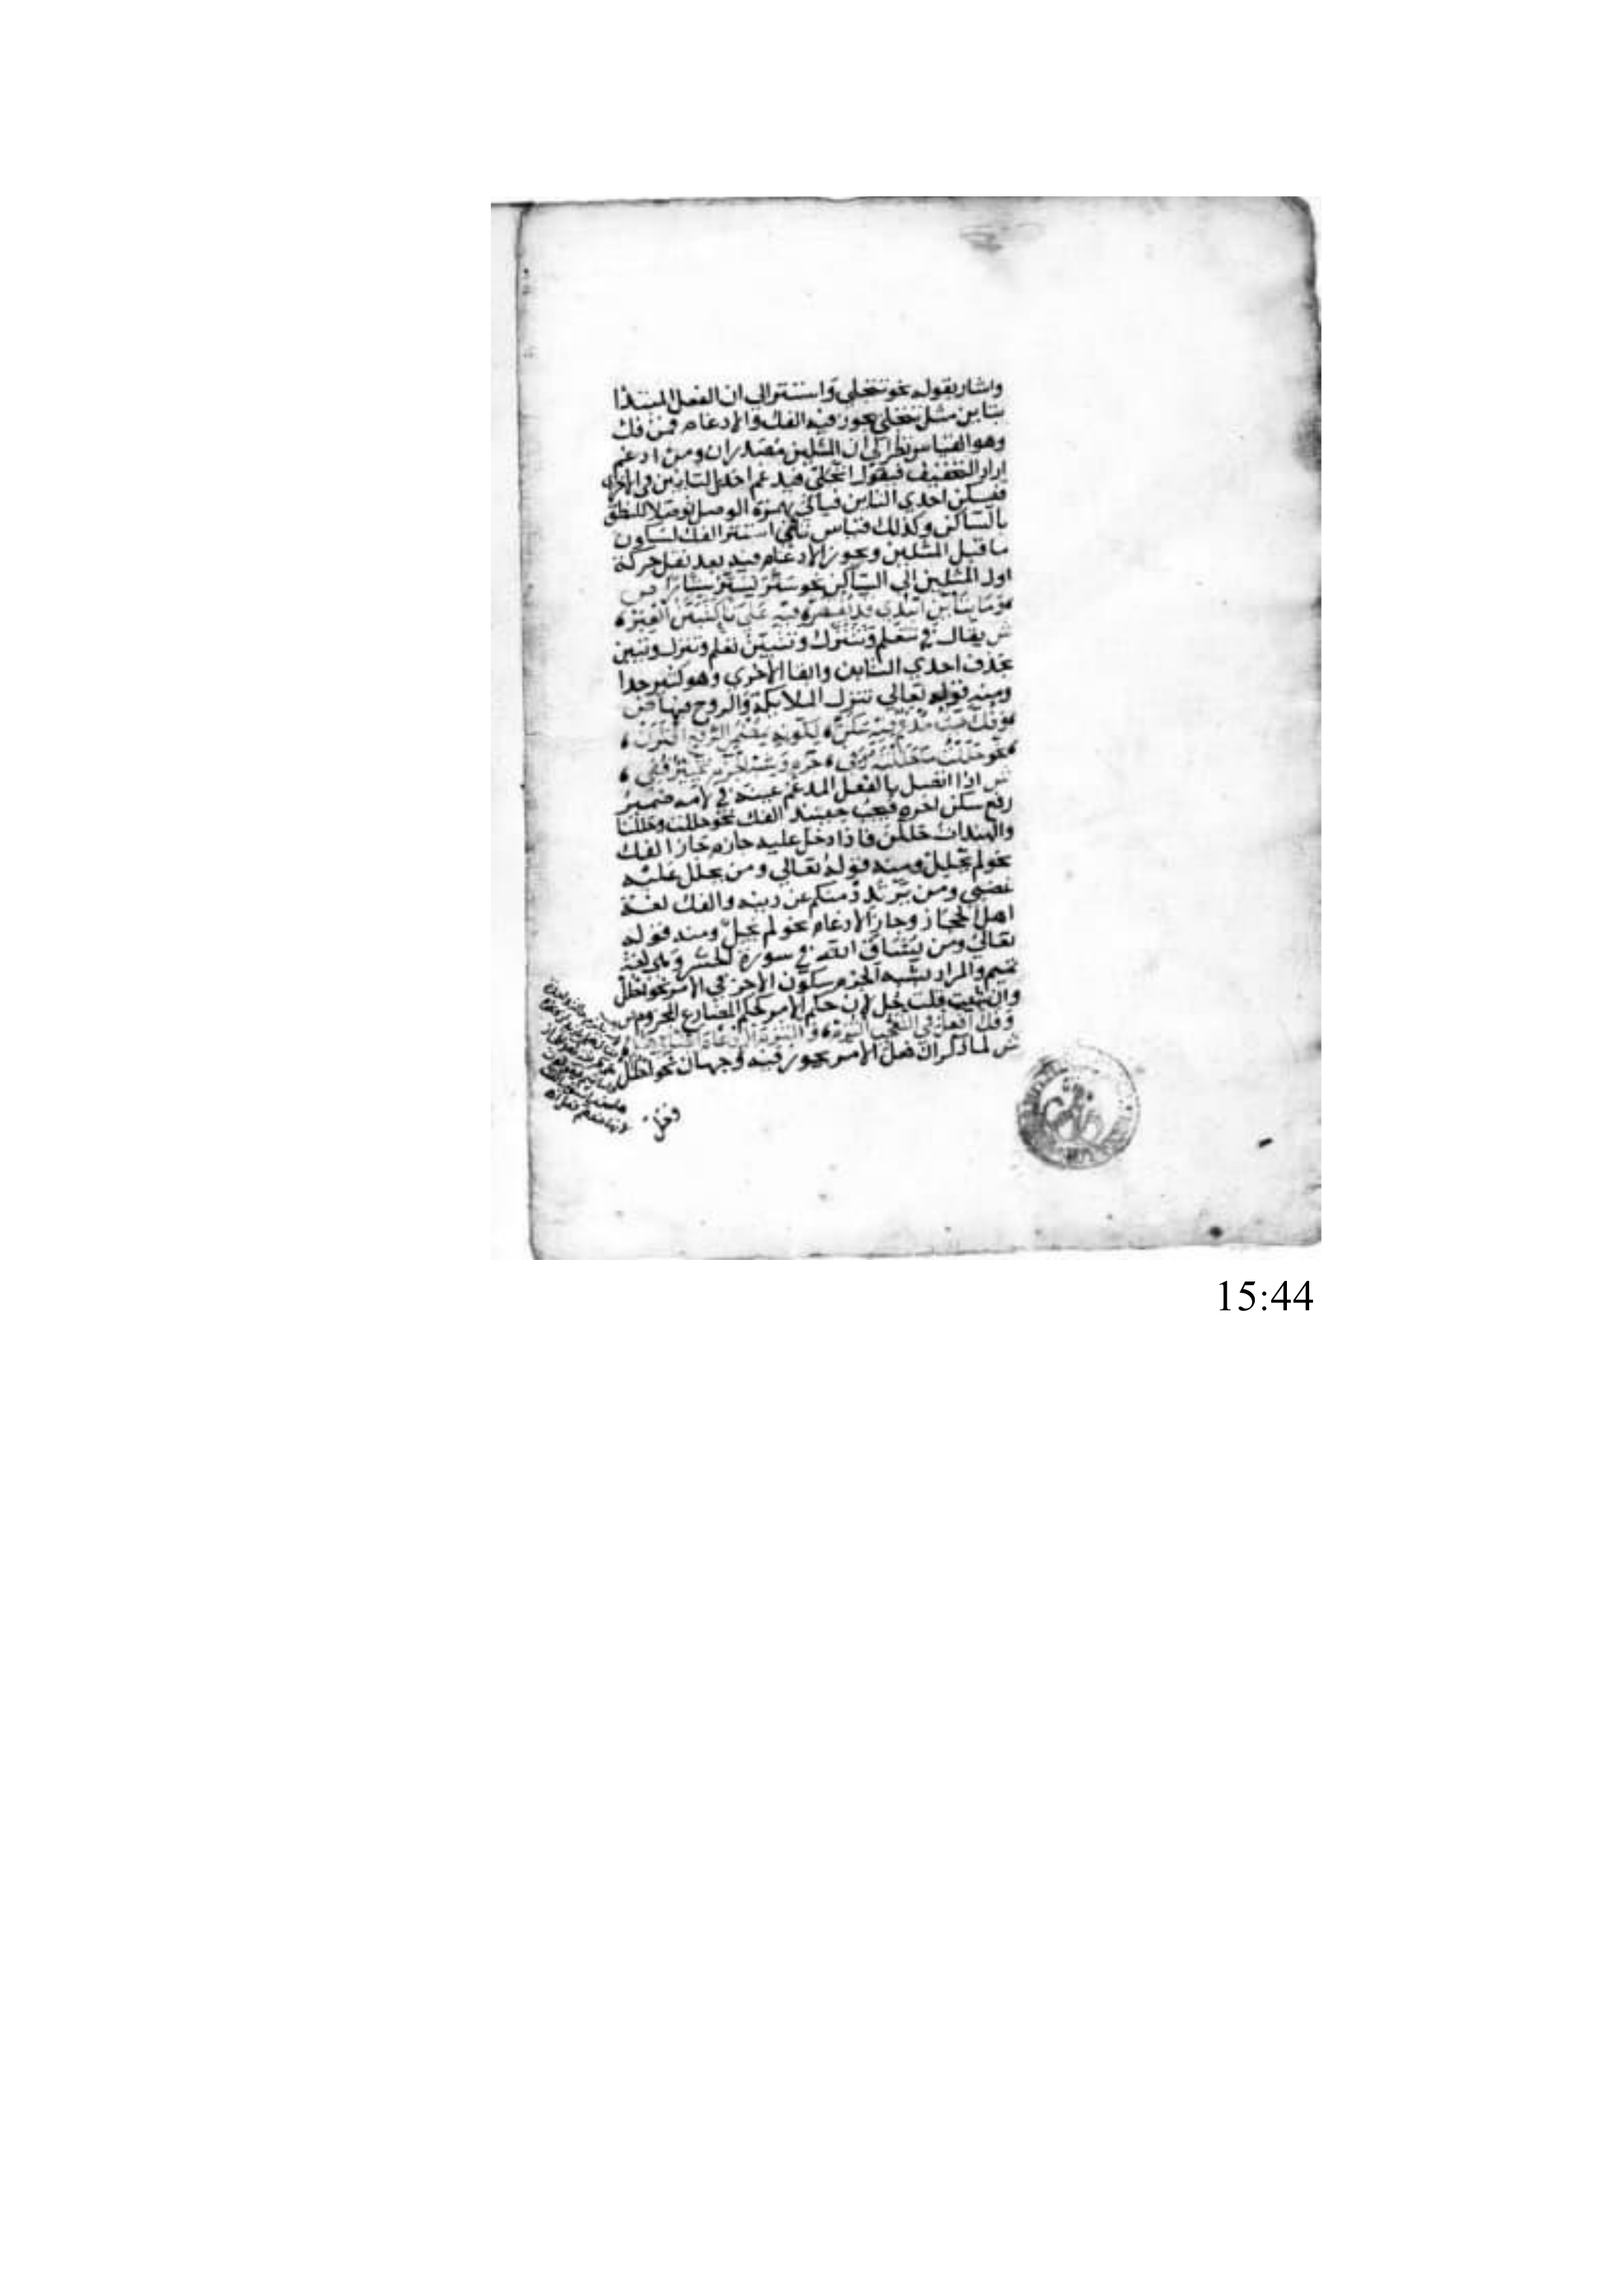 واشار بقوله نحو تتجلى واستتر الى ان الفعل المبتدا
بتاين مثل تتجلى يجوز فيه الفك والادغام فمن فك
وهو القياس نظر الى ان المثلين مصدران ومن ادغم
اراد التخفيف فيقول اتجلى فيدغم احدى التاءين فى الاخرى
فيسكن احدى التاين فياتي بهمزة الوصل توصلا للنطق
بالساكن وكذلك قياس تاءي استتر الفك لسكون
ما قبل المثلين ويجوز الادغام فيه بعد نقل حركة
اول المثلين الى الساكن نحو ستر يستر ستارا ص
وما بتاين ابتدي قد يقتصر فيه على تا كتبين العبر
ش يقال في تتعلم وتتنزل وتتبين تعلم وتنزل وتبين
بحذف احدى التاين وابقا الاخرى وهو كثير جدا
ومنه قوله تعالى تنزل الملائكة والروح فيها ص
وفك حيث مدغم فيه سكن لكونه بمضمر الرفع اقترن
نحو حللت ما حللته وفي جزم وشبه الجزم تخيير قفي
ش اذا اتصل بالفعل المدغم عينه في لامه ضمير
رفع سكن اخره فيجب حينيذ الفك نحو حللت وحللنا
والهندات حللن فاذا دخل عليه جازم جاز الفك
نحو لم يحلل ومنه قوله تعالى ومن يحلل عليه
غضبي ومن يرتدد منكم عن دينه والفك لغة
اهل الحجاز وجاز الادغام نحو لم يحل ومنه قوله
تعالى ومن يشاق الله في سورة الحشر وهي لغة
تميم والمراد بشبه الجزم سكون الاخر في الامر نحو احلل
وان شيت قلت حل لان حكم الامر كحكم المضارع المجزوم ص
وفك افعل في التعجب التزم والتزم الادغام ايضا في هلم
ش لما ذكر ان فعل الامر يجوز فيه وجهان نحو احلل
وحل
15:44